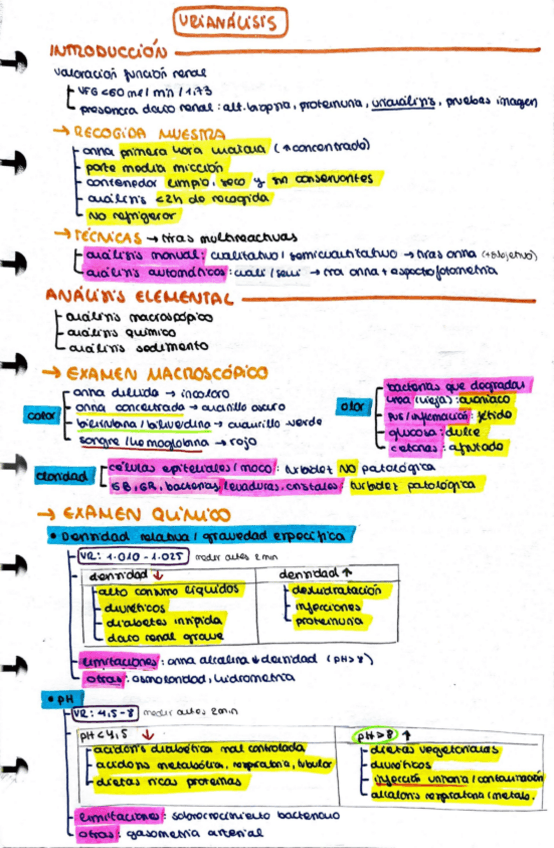 URIANÁLISIS
INTRODUCCIÓN
valoración función renal
VFG <60 ml/min/1,73
presencia daño renal: alt. biopsia, proteinuria, urianálisis, pruebas imagen
→ RECOGIDA MUESTRA
orina primera hora mañana (↑concentrado)
parte media micción
contenedor limpio, seco y sin conservantes
análisis <2h de recogida
No refrigerar
→ TÉCNICAS → tiras multireactivas
análisis manual: cualitativo/semicuantitativo → tiras orina (+ objetivo)
análisis automáticos: cuali/semi → tira orina + aspecto fotometría
ANÁLISIS ELEMENTAL
análisis macroscópico
análisis químico
análisis sedimento
→ EXAMEN MACROSCÓPICO
color
orina diluida → incoloro
orina concentrada → amarillo oscuro
bilirrubina/biliverdina → amarillo verde
sangre/hemoglobina → rojo
olor
bacterias que degradan
urea (vieja): amoniaco
pus/inflamación: fétido
glucosa: dulce
cetonas: afrutado
claridad
células epiteliales/moco: turbidez NO patológica
GB, GR, bacterias, levaduras, cristales: turbidez patológica
→ EXAMEN QUÍMICO
• Densidad relativa/gravedad específica
VR: 1.010-1.025 medir antes 2min
densidad ↓
alto consumo líquidos
diuréticos
diabetes insípida
daño renal grave
densidad ↑
deshidratación
infecciones
proteinuria
limitaciones: orina alcalina ↓ densidad (pH>8)
otras: osmolaridad, hidrometría
• pH
VR: 4,5-8 medir antes 2min
pH<4,5 ↓
acidosis diabética mal controlada
acidosis metabólica, respiratoria, tubular
dietas ricas proteínas
pH>8 ↑
dietas vegetarianas
diuréticos
infección urinaria/contaminación
alcalosis respiratoria/metabo.
limitaciones: sobrecrecimiento bacteriano
otras: gasometría arterial